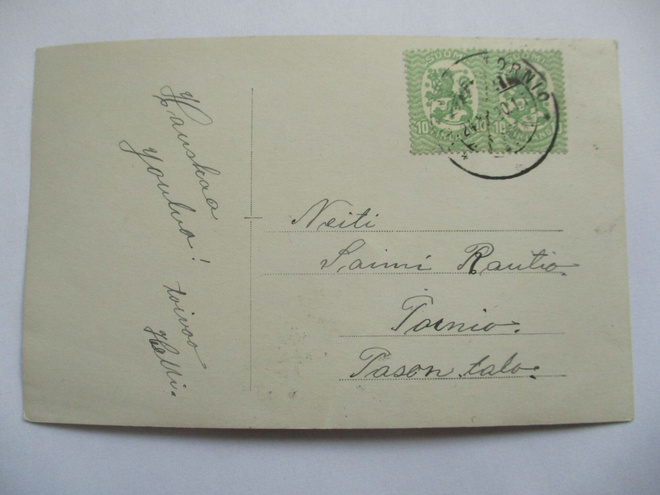 Hauskaa
Joulua!
toivoo
Helli.
SUOMI
10
10
10
TORNIO
Neiti
Saimi Rautio.
Tornio.
Pason talo.